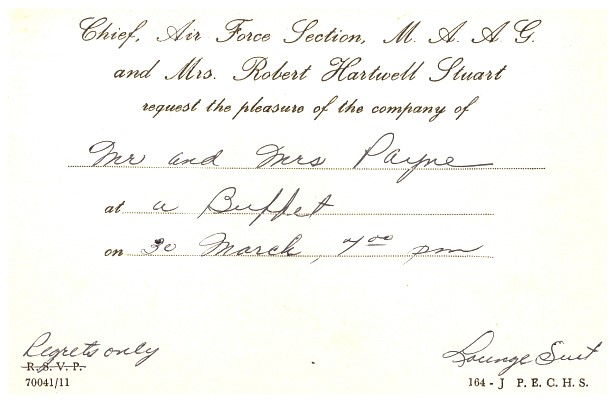 Chief, Air Force Section, M. A. A G.
and Mrs. Robert Hartwell Stuart
request the pleasure of the company of
Mr and Mrs Payne
at a Buffet
on 30 March, 7 00 pm
Regrets only
R.S.V.P.
70041/11
Lounge Suit
164 - J P. E. C. H. S.